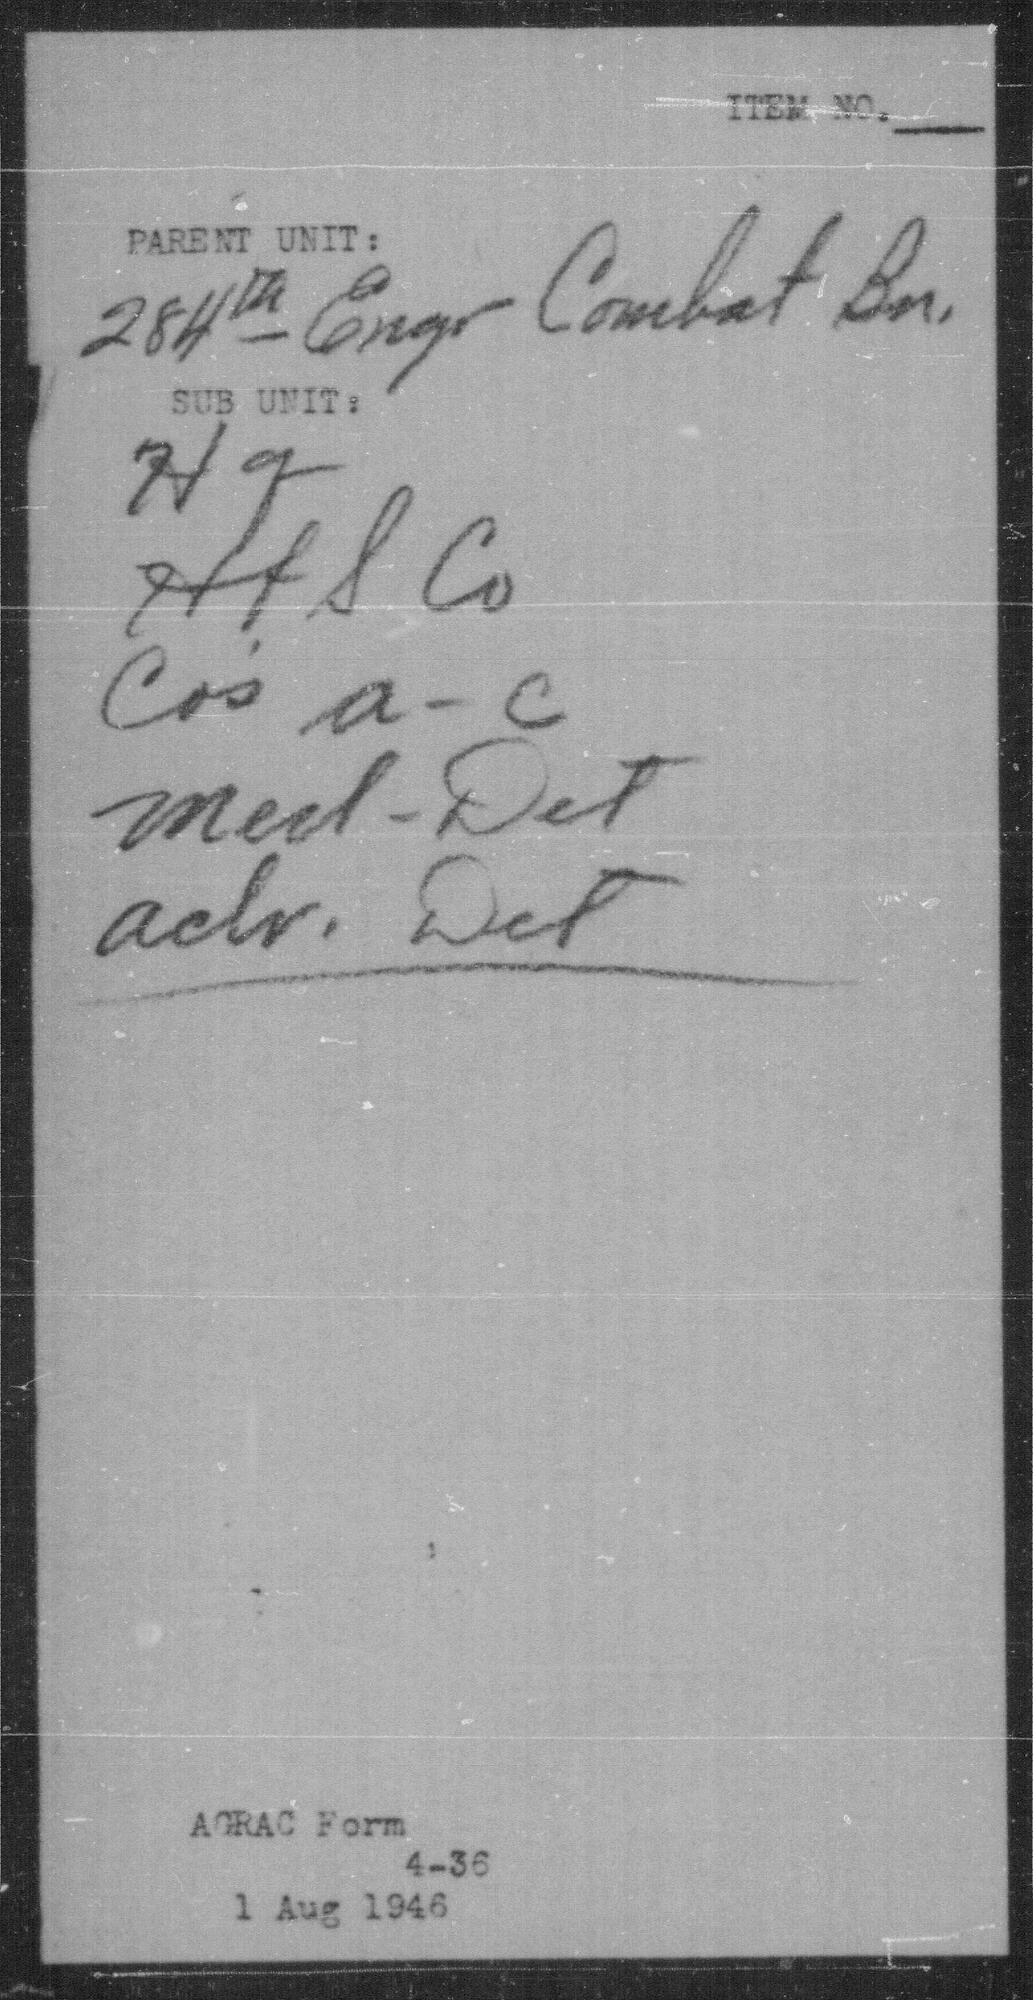 ITEM NO.
PARENT UNIT:
284th Engr Combat Bn.
SUB UNIT:
Hq
H & S Co
Co's a-c
Med-Det
adv. Det
AGRAC Form
4-36
1 Aug 1946